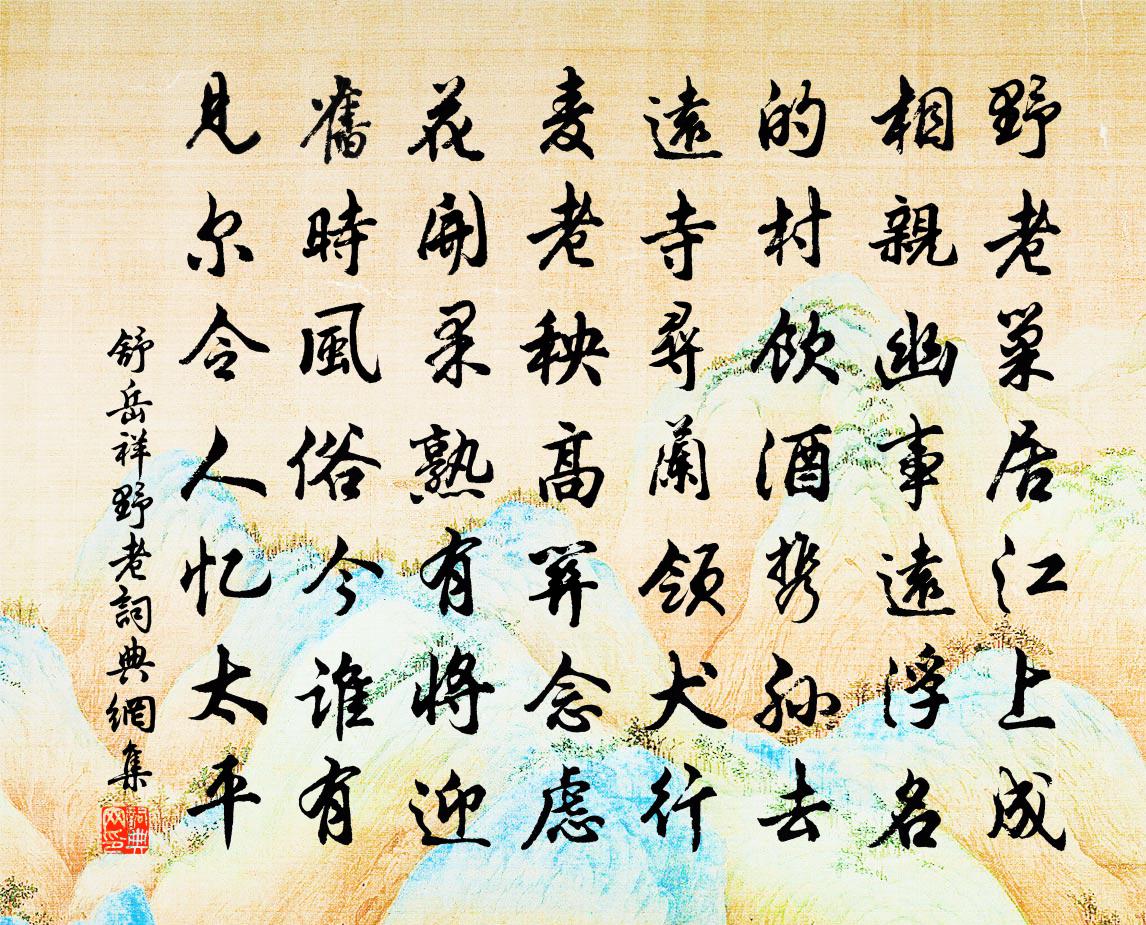 野老巢居江上成
相親幽事遠浮名
的村飲酒携孫去
遠寺尋蘭領犬行
麦老秧高笄念慮
花開果熟有將迎
舊時風俗今誰有
見尔令人忆太平
舒岳祥野老詞典網集
詞典网印